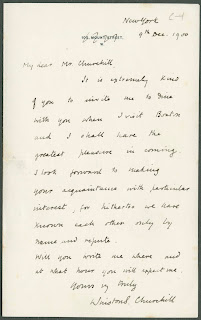 New York C-4
9th Dec. 1900
My dear Mr. Churchill
It is extremely kind
of you to invite me to dine
with you when I visit Boston
and I shall have the
greatest pleasure in coming
I look forward to making
your acquaintance with particular
interest, for hitherto we have
known each other only by
name and repute.
Will you write me where and
at what hour you will expect me.
Yours vy truly
Winston S. Churchill